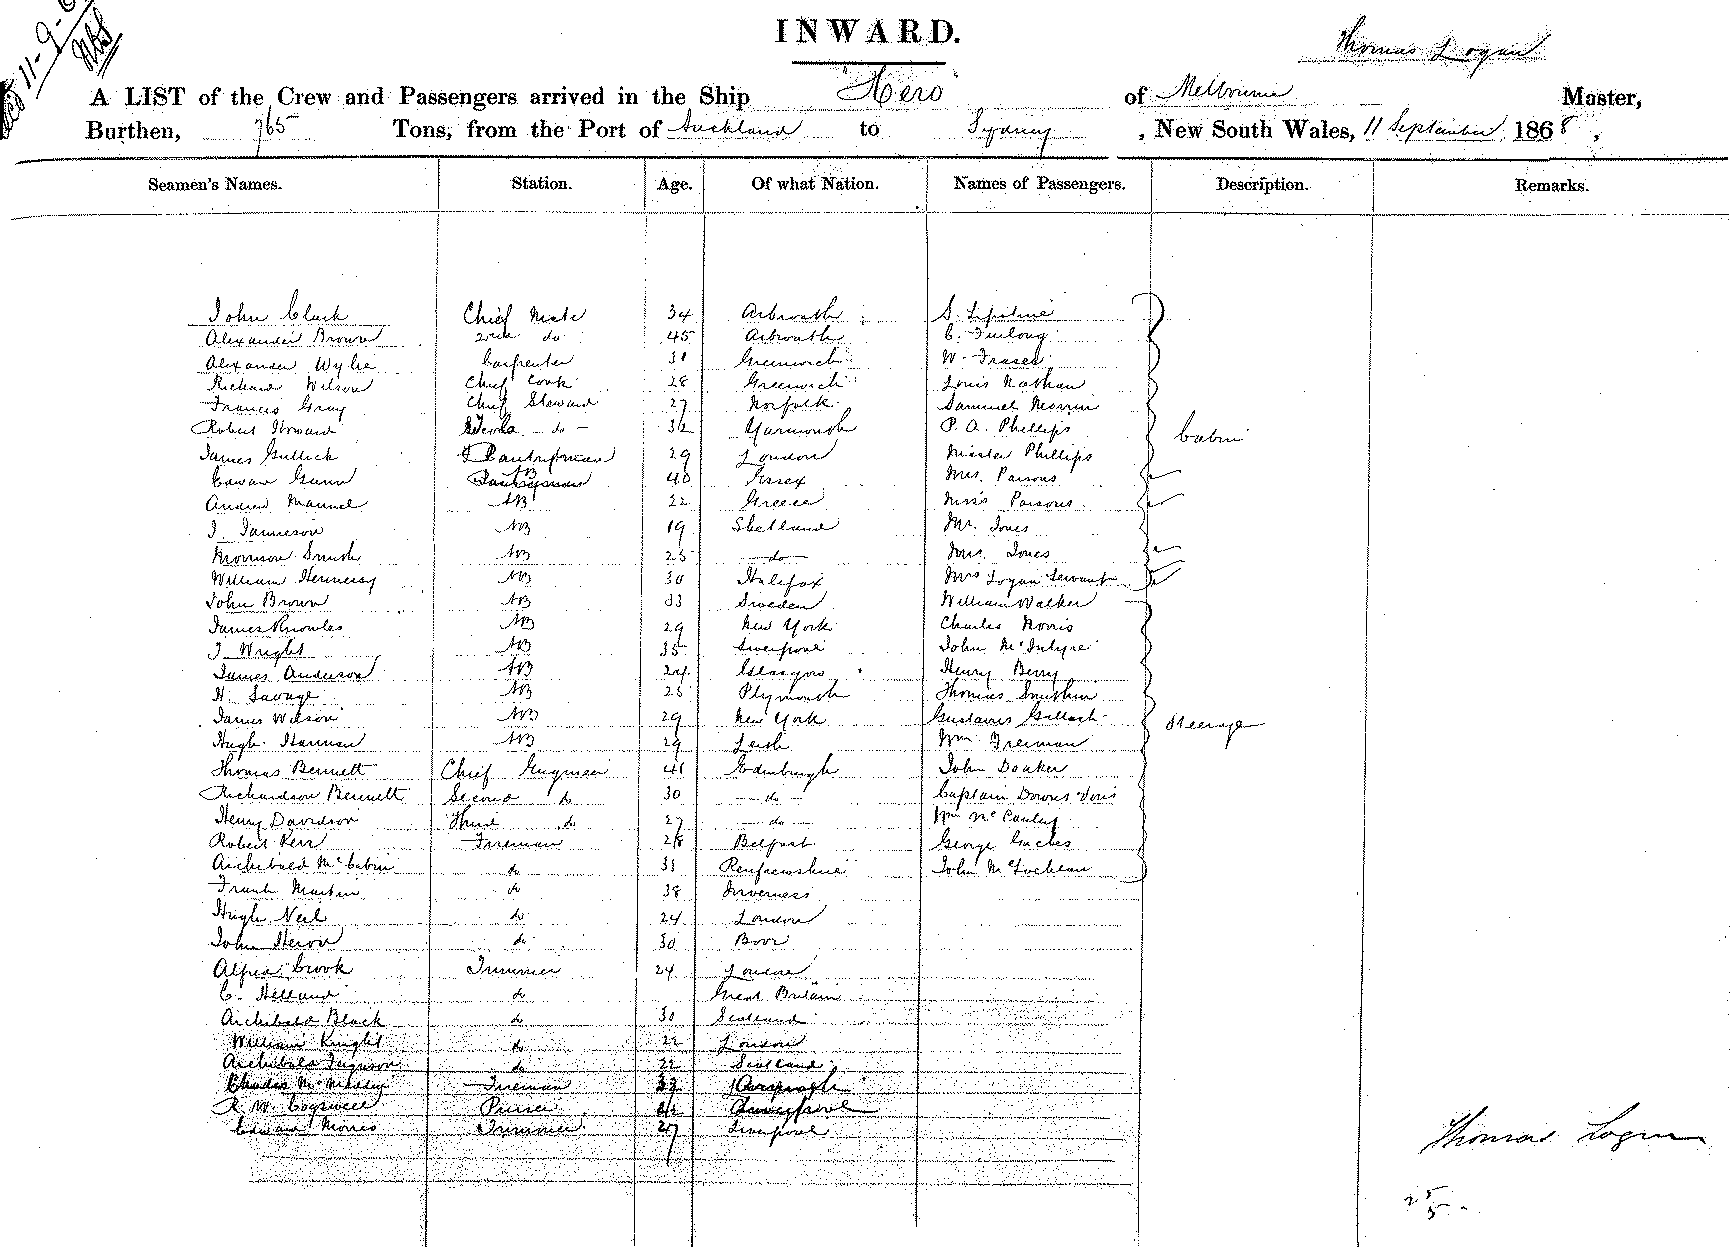 11-9-6
INWARD.
Thomas Logan
A LIST of the Crew and Passengers arrived in the Ship "Hero" of Melbourne Master,
Burthen, 765 Tons, from the Port of Auckland to Sydney, New South Wales, 11 September 1868,
Seamen's Names. Station. Age. Of what Nation. Names of Passengers. Description. Remarks.
John Clark Chief Mate 34 Arbroath S.
Alexander Brown 2nd do 45 Arbroath C. Furlong
Alexander Wylie Carpenter 31 Greenwich W. Fraser
Richard Wilson Chief Cook 28 Greenwich Louis Nathan
Francis Gray Chief Steward 27 Norfolk Samuel Morrin
Robert Howard - do - 32 Yarmouth P. A. Phillips Cabin
James Gullick Pantryman 29 London Master Phillips
Edward Gunn AB 40 Essex Mrs. Parsons
Andrew Manuel AB 22 Greece Miss Parsons
J. Jamieson AB 19 Shetland Mr. Jones
Morrison Smith AB 25 - do - Mrs. Jones
William Hennessy AB 30 Halifax Mrs Logan Servant
John Brown AB 33 Sweden William Walker
James Knowles AB 29 New York Charles Norris
J. Wright AB 35 Liverpool John McIntyre
James Anderson AB 24 Glasgow Henry Berry
H. Savage AB 25 Plymouth Thomas
James Wilson AB 29 New York Gustavus Steerage
Hugh Harman AB 29 Leith Wm Freeman
Thomas Bennett Chief Engineer 41 Edinburgh John
Richardson Bennett Second do 30 - do - Captain Downs
Henry Davidson Third do 27 - do - Wm McCauley
Robert Kerr Fireman 28 Belfast George
Archibald McCabin do 33 Renfrewshire John McLochlan
Frank Martin do 38 Inverness
Hugh Neil do 24 London
John Heron do 30
Alfred Crook Trimmer 24 London
C. Helland do Great Britain
Archibald Black do 30 Scotland
William Knight do 22 London
Archibald Ferguson do 22 Scotland
Charles Fireman 33
R. W. Cogswell Purser Liverpool
Edward Morris Trimmer 27 Liverpool
Thomas Logan